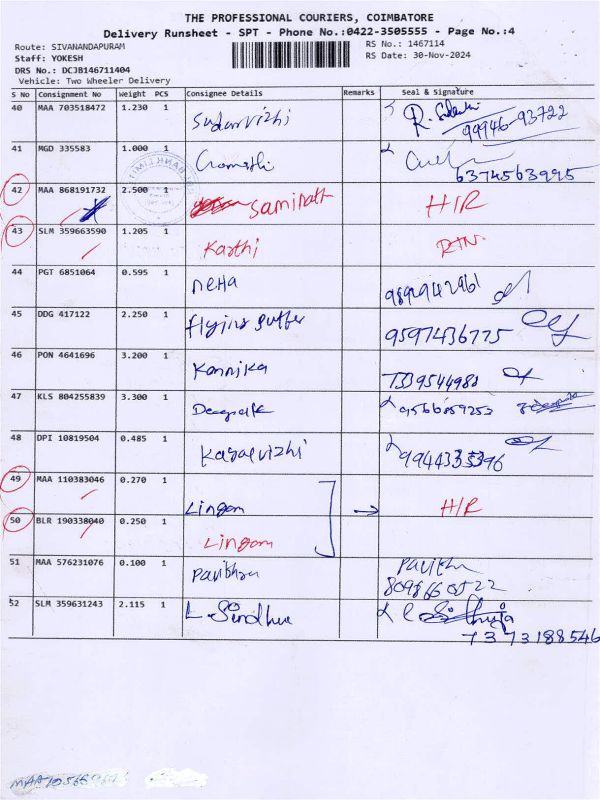 THE PROFESSIONAL COURIERS, COIMBATORE
Delivery Runsheet - SPT - Phone No.:0422-3505555 - Page No.:4
Route: SIVANANDAPURAM
RS No.: 1467114
Staff: YOKESH
RS Date: 30-Nov-2024
DRS No.: DCJB146711404
Vehicle: Two Wheeler Delivery
S No Consignment No Weight PCS Consignee Details Remarks Seal & Signature
40 MAA 703518472 1.230 1 Sudarvizhi R. 99946-93722
41 MGD 335583 1.000 1 6374563995
42 MAA 868191732 2.500 1 Saminath H/R
43 SLM 359663590 1.205 1 Karthi RTN.
44 PGT 6851064 0.595 1 Neha
45 DDG 417122 2.250 1 Flying 9597436775
46 PON 4641696 3.200 1 Kannika 7339544980
47 KLS 804255839 3.300 1 Deepak
48 DPI 10819504 0.485 1 9944335396
49 MAA 110383046 0.270 1 Lingam → H/R
50 BLR 190338040 0.250 1 Lingam
51 MAA 576231076 0.100 1 Pavithra
52 SLM 359631243 2.115 1 L. Sindhu
7373188546